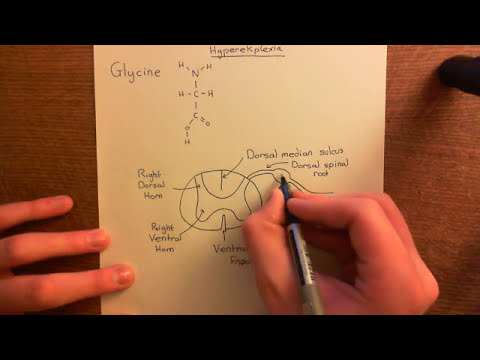 Hyperekplexia
Glycine
H
H
N
H
C
H
C
O
O
H
Dorsal median sulcus
Dorsal spinal
rod
Right
Dorsal
Horn
Right
Ventral
Horn
Ventral